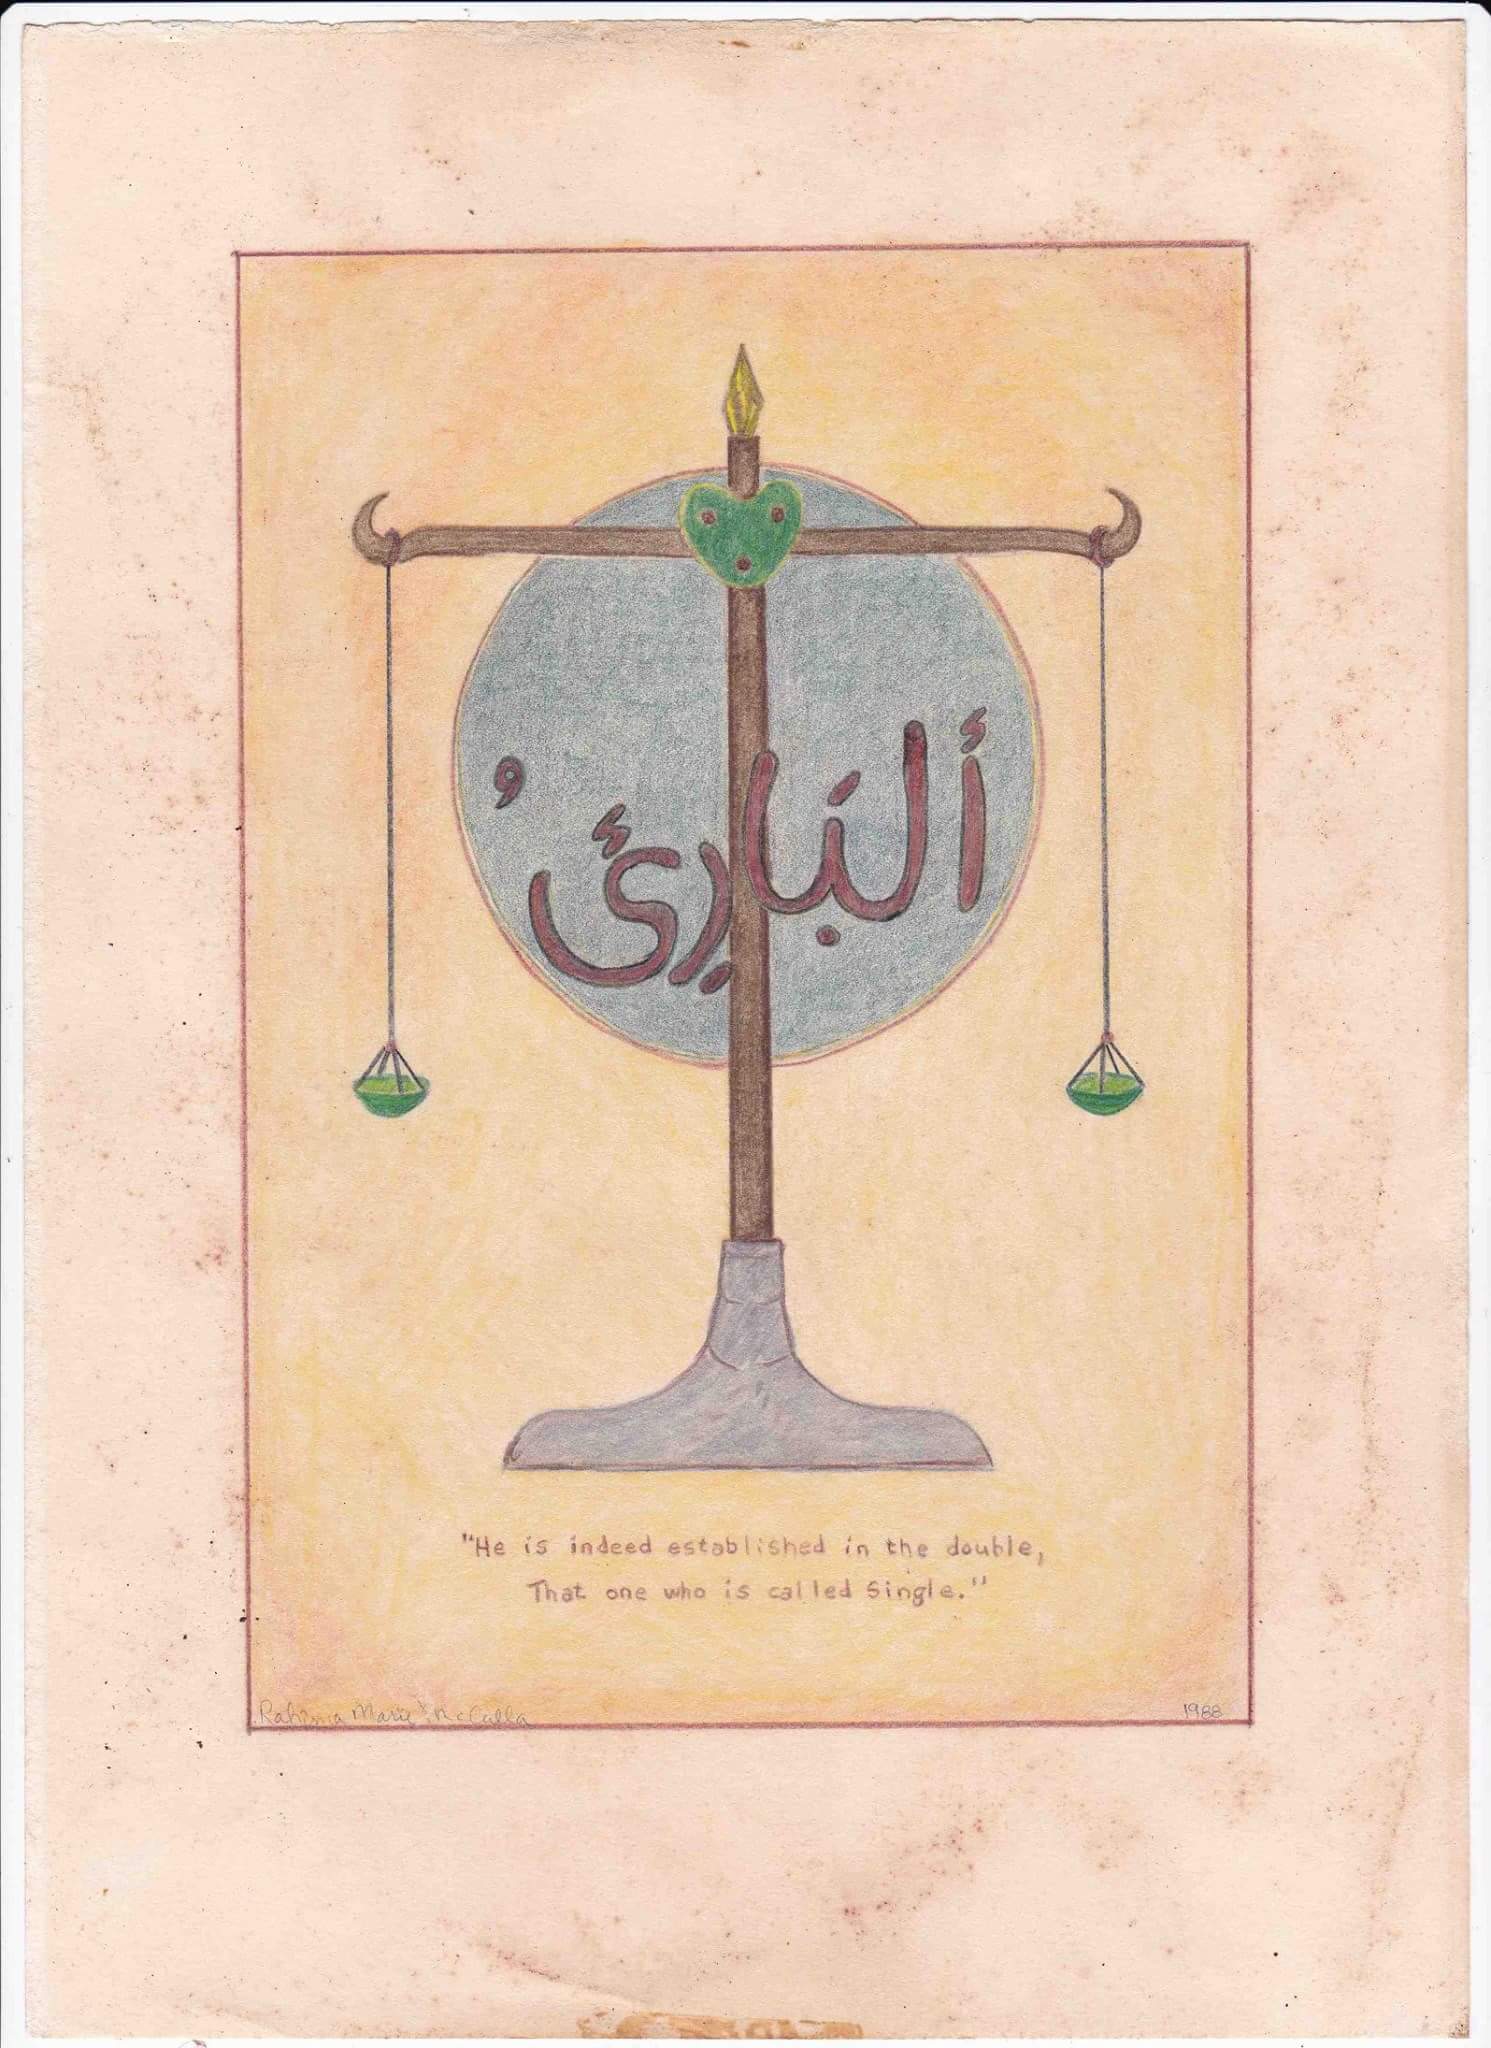 أَلْبَارِئُ
"He is indeed established in the double,
That one who is called Single."
Rahima Marie McCulla
1988